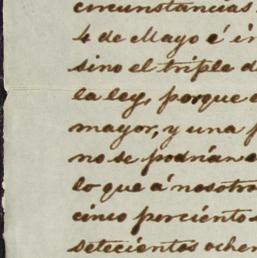 circunstancias
4 de Mayo é in
sino el triple d
la ley, porque
mayor, y una p
no se podrian
lo que á nosotro
cinco porciento
setecientos ochen